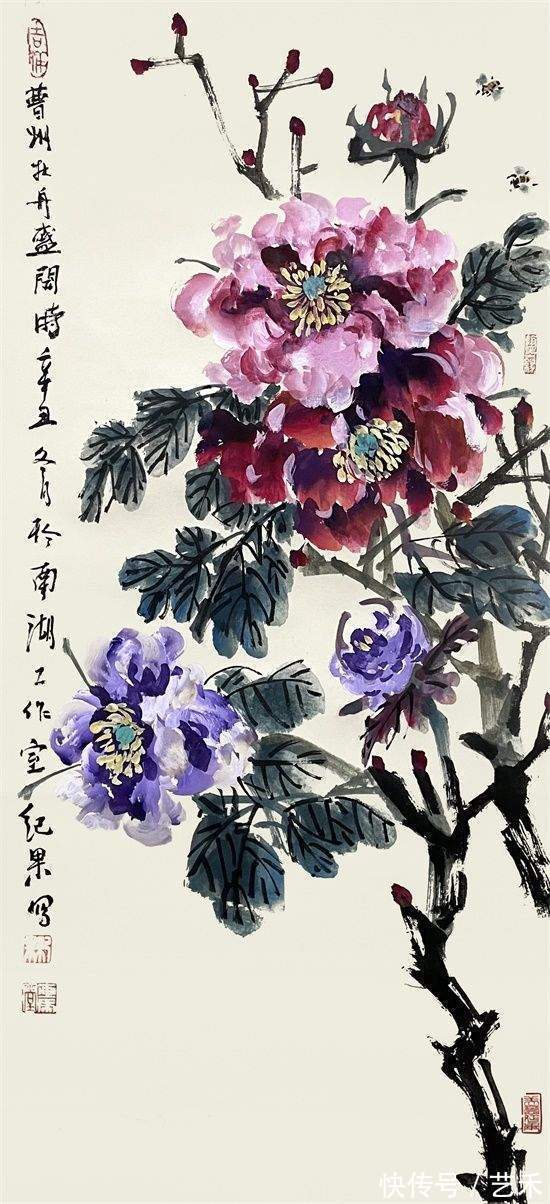 曹州牡丹盛開時辛丑冬月於南湖工作室纪果写
快传号/艺禾